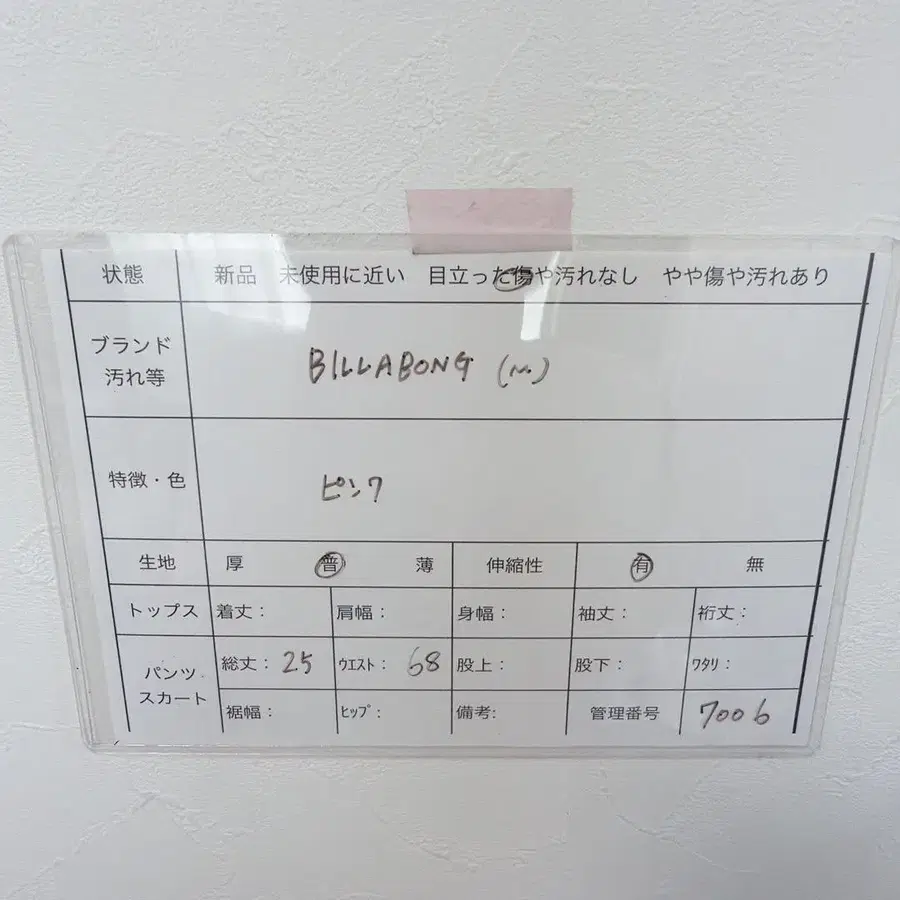 状態 新品 未使用に近い 目立った傷や汚れなし やや傷や汚れあり
ブランド
汚れ等
BILLABONG (M)
特徴・色 ピンク
生地 厚 普 薄 伸縮性 有 無
トップス 着丈: 肩幅: 身幅: 袖丈: 裄丈:
パンツ
スカート
総丈: 25 ウエスト: 68 股上: 股下: ワタリ:
裾幅: ヒップ: 備考: 管理番号 7006